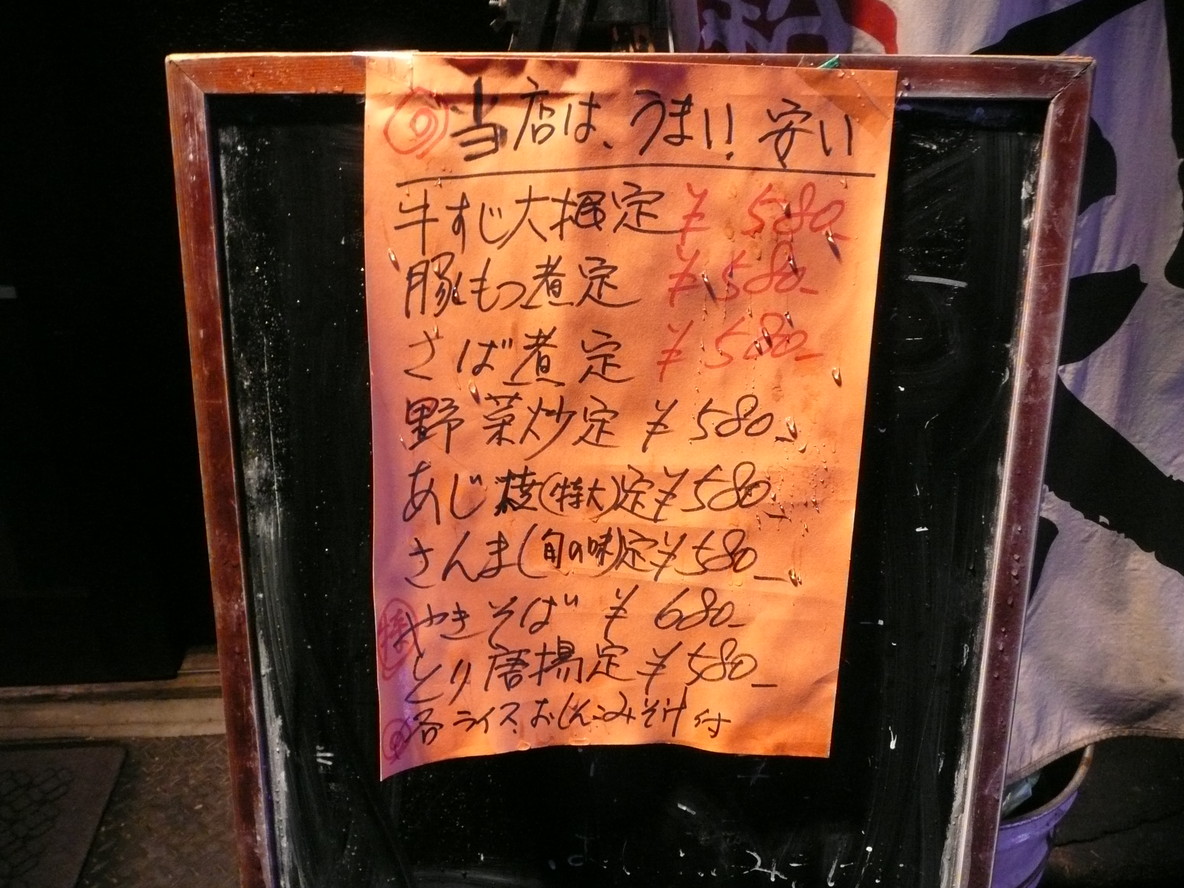 当店は、うまい!! 安い
牛すじ大根定 ¥580-
豚もつ煮定 ¥580-
さば煮定 ¥580-
野菜炒定 ¥580-
あじ焼(特大)定 ¥580-
さんま(旬の味)定 ¥580-
特 やきそば ¥680-
とり唐揚定 ¥580-
各ライス、おしんこ、みそ汁付